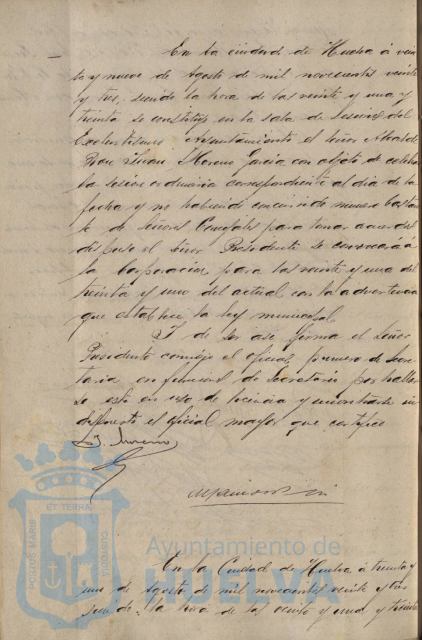 En la ciudad de Huelva á vein
te y nueve de Agosto de mil novecientos veinte
y tres, siendo la hora de las veinte y una y
treinta se constituyó en la sala de sesiones del
Excelentísimo Ayuntamiento el Señor Alcalde
Don Juan Moreno Garcia con objeto de celebrar
la sesion ordinaria correspondiente al dia de la
fecha y no habiendo concurrido numero bastan
te de Señores Concejales para tomar acuerdos
dispuso el Señor Presidente se convocara á
la Corporación para las veinte y una del
treinta y uno del actual con la advertencia
que establece la ley municipal
Y de ser así firma el Señor
Presidente conmigo el oficial primero de Secre
taria en funciones de Secretario por hallar
se este en uso de licencia y encontrarse in
dispuesto el oficial mayor que certifico
J. Moreno
PORTUS MARIS
ET TERRÆ
CUSTODIA
Ayuntamiento de
HUELVA
En la Ciudad de Huelva á treinta y
uno de Agosto de mil novecientos veinte y tres
siendo la hora de las veinte y una y treinta